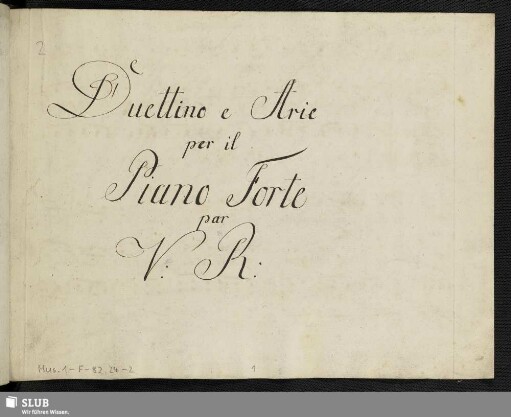 2
Duettino e Arie
per il
Piano Forte
par
V: R:
Mus. 1-F-82,24-2
1
SLUB
Wir führen Wissen.